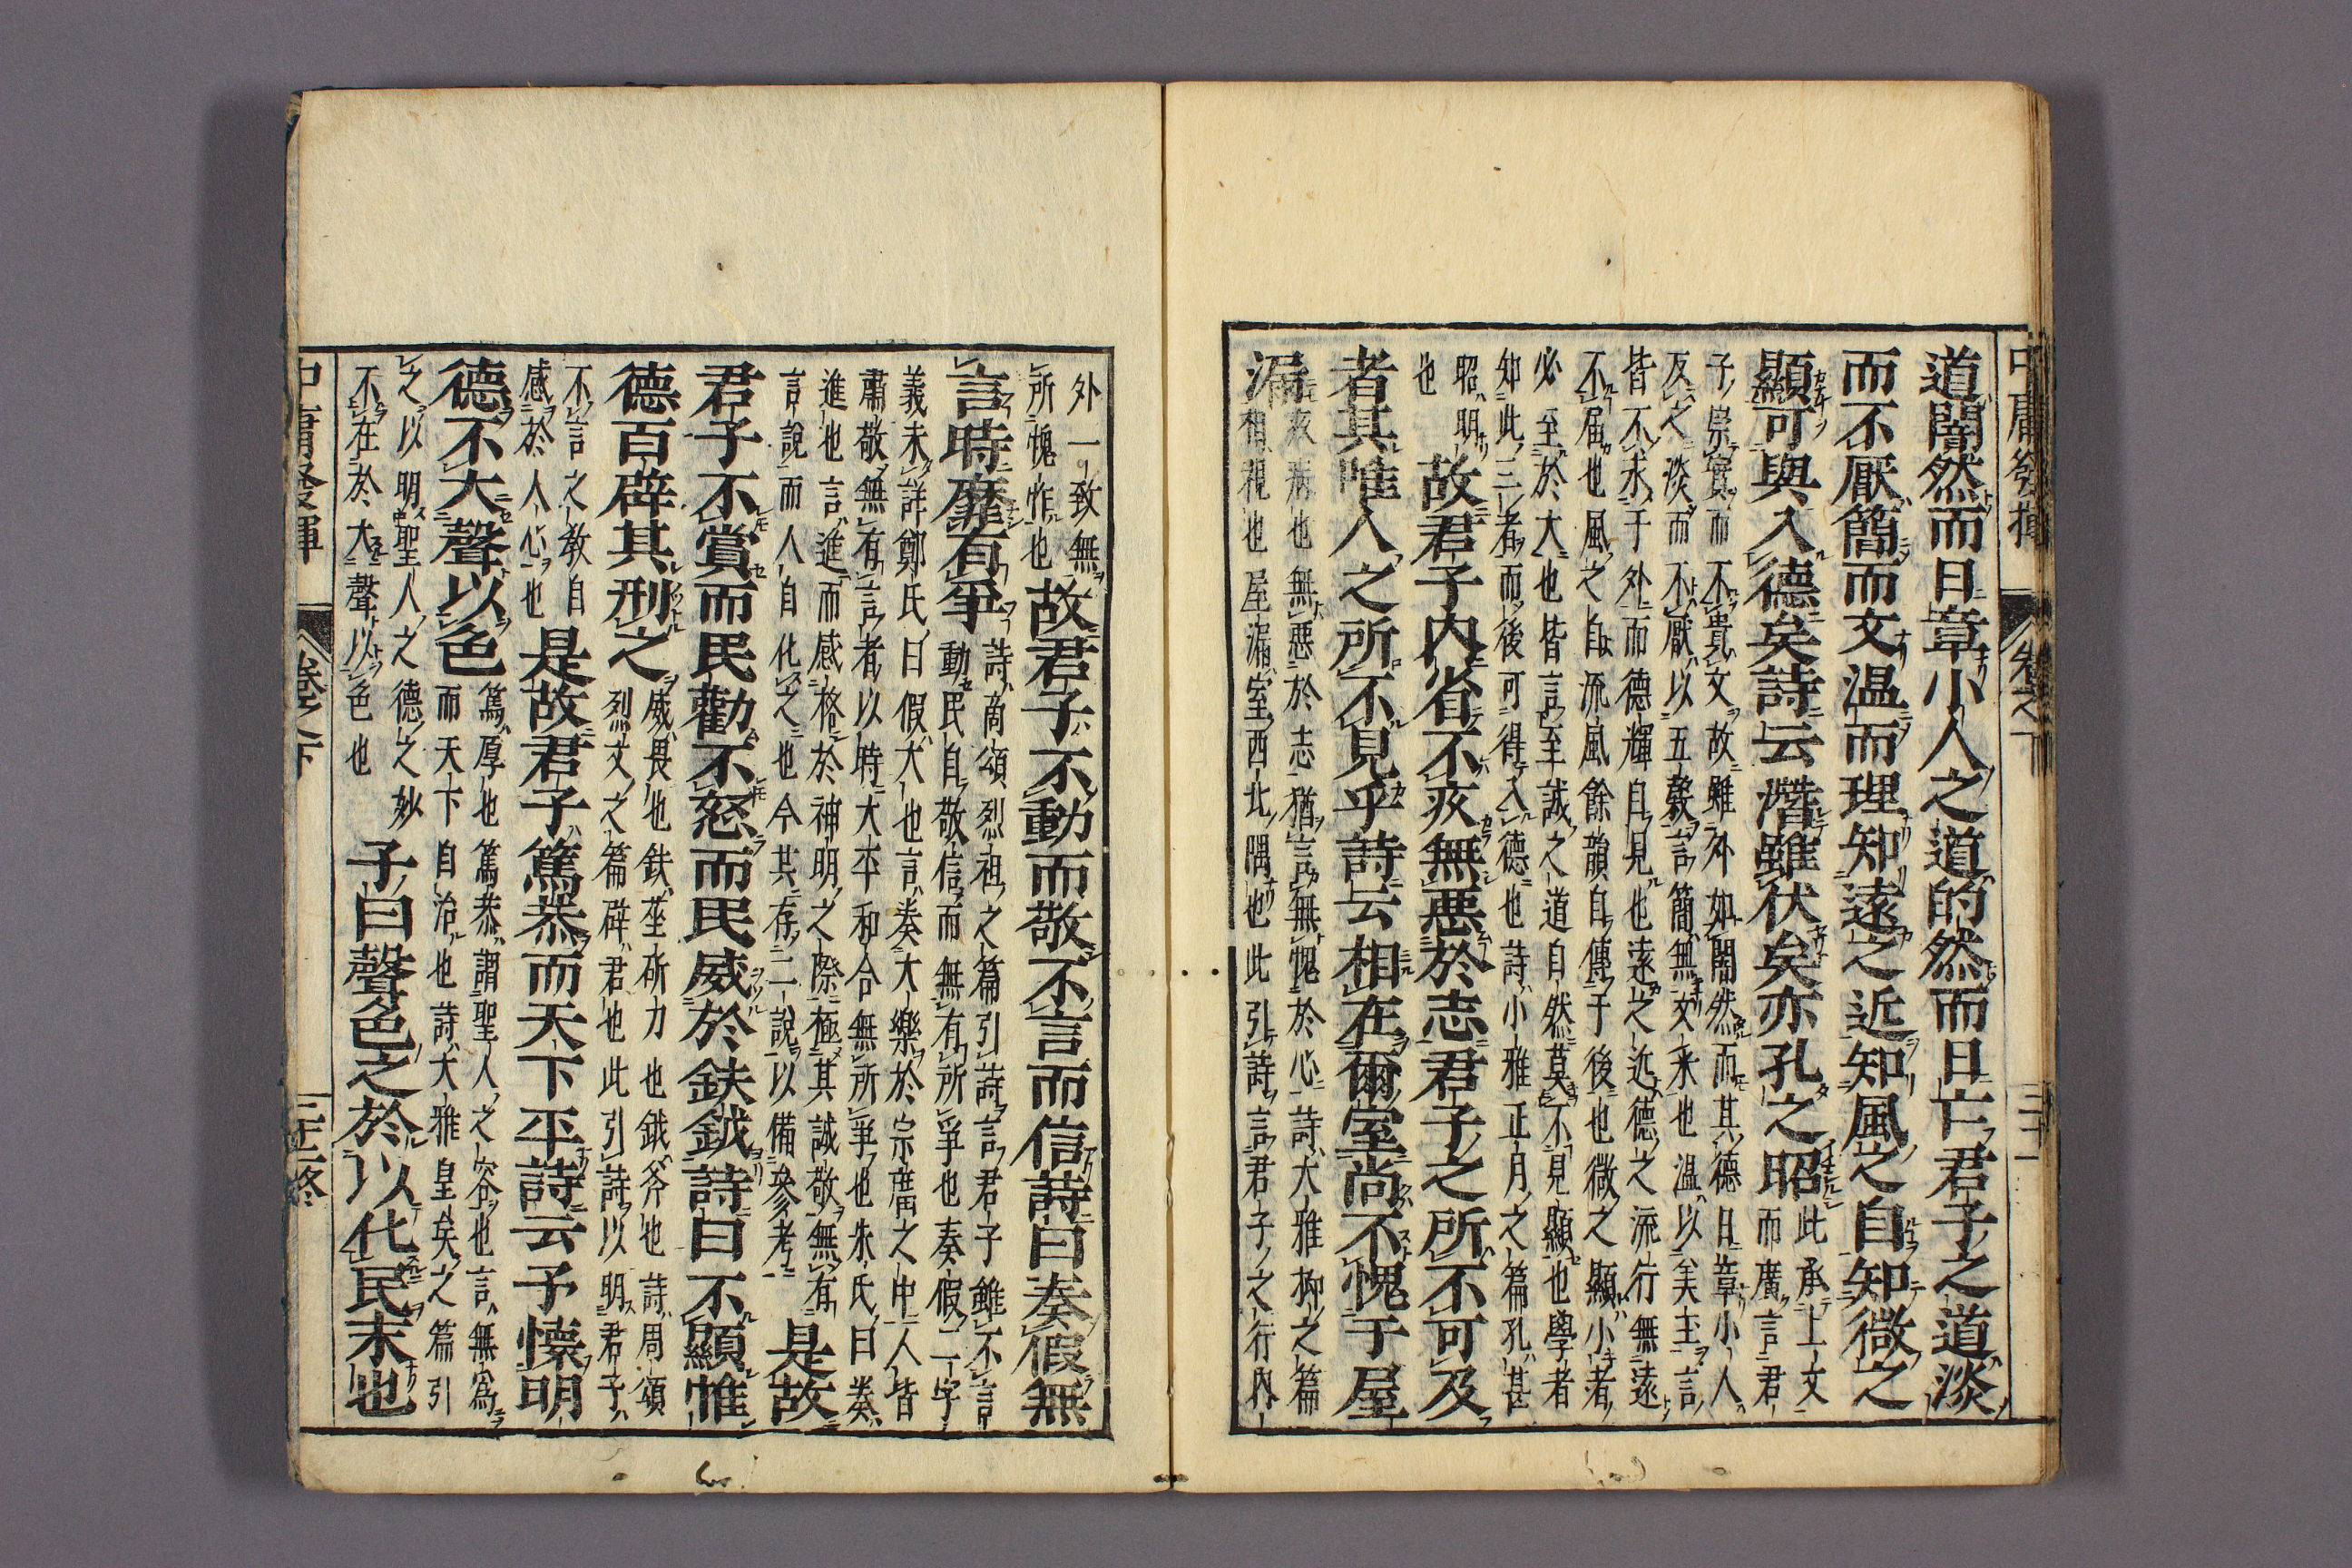 道闇然而日章小人之道的然而日亡君子之道淡
而不厭簡而文温而理知遠之近知風之自知微之
顯可與入德矣詩云潛雖伏矣亦孔之昭此承上文而廣言君
子崇實而不貴文故雖外如闇然而其德日章小人
反之淡而不厭以五穀言簡無文采也温以美玉言
皆不求于外而德輝自見也遠之近德之流行無遠
不届也風之自流風餘韻自傳于後也微之顯小者
必至於大也皆言至誠之道自然莫不見顯也學者
知此三者而後可得入德也詩小雅正月之篇孔甚
昭明
也
故君子内省不疚無惡於志君子之所不可及
者其唯人之所不見乎詩云相在爾室尚不愧于屋
漏疚病也無惡於志猶言無愧於心詩大雅抑之篇
相視也屋漏室西北隅也此引詩言君子之行内
外一致無
所愧怍也
故君子不動而敬不言而信詩曰奏假無
言時靡有爭詩商頌烈祖之篇引詩言君子雖不言
動民自敬信而無有所爭也奏假二字
義未詳鄭氏曰假大也言奏大樂於宗廟之中人皆
肅敬無有言者以時大平和合無所爭也朱氏曰奏
進也言進而感格於神明之際極其誠敬無有
言說而人自化之也今其存二說以備參考
是故
君子不賞而民勸不怒而民威於鈇鉞詩曰不顯惟
德百辟其刑之威畏也鈇莝斫刀也鉞斧也詩周頌
烈文之篇辟君也此引詩以明君子
不言之教自
感於人心也
是故君子篤恭而天下平詩云予懷明
德不大聲以色篤厚也篤恭謂聖人之容也言無為
而天下自治也詩大雅皇矣之篇引
之以明聖人之德之妙
不在於大聲以色也
子曰聲色之於以化民末也
中庸發揮
卷之下
三十一
中庸發揮
卷之下